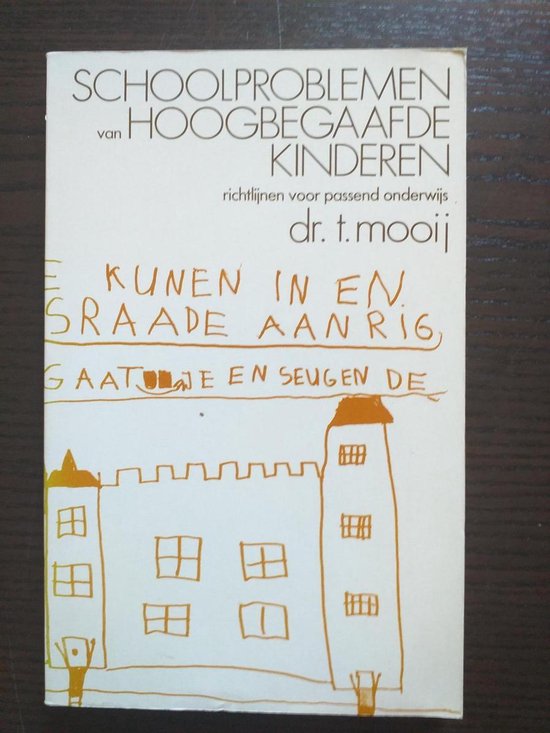 SCHOOLPROBLEMEN
van HOOGBEGAAFDE
KINDEREN
richtlijnen voor passend onderwijs
dr. t. mooij
E KUNEN IN EN
SRAADE AANRIG
GAAT JE EN SEUGEN DE